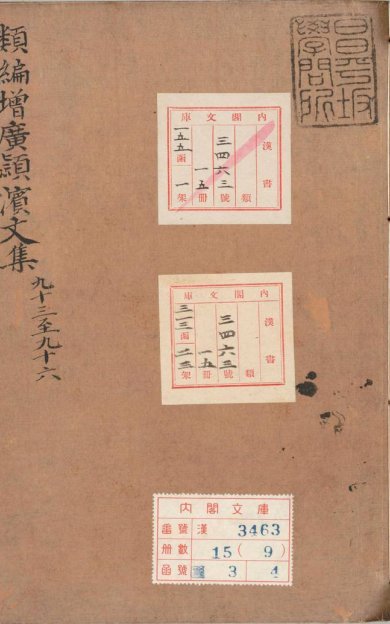 類編增廣潁濱文集
九十三至九十六
昌平坂
學問所
庫文閣內
漢書
類
三四六三號
一五冊
一五五函
一架
庫文閣內
漢書
類
三四六三號
一五冊
三一三函
二三架
內閣文庫
番號 漢 3463
冊數 15(9)
函號 3 4